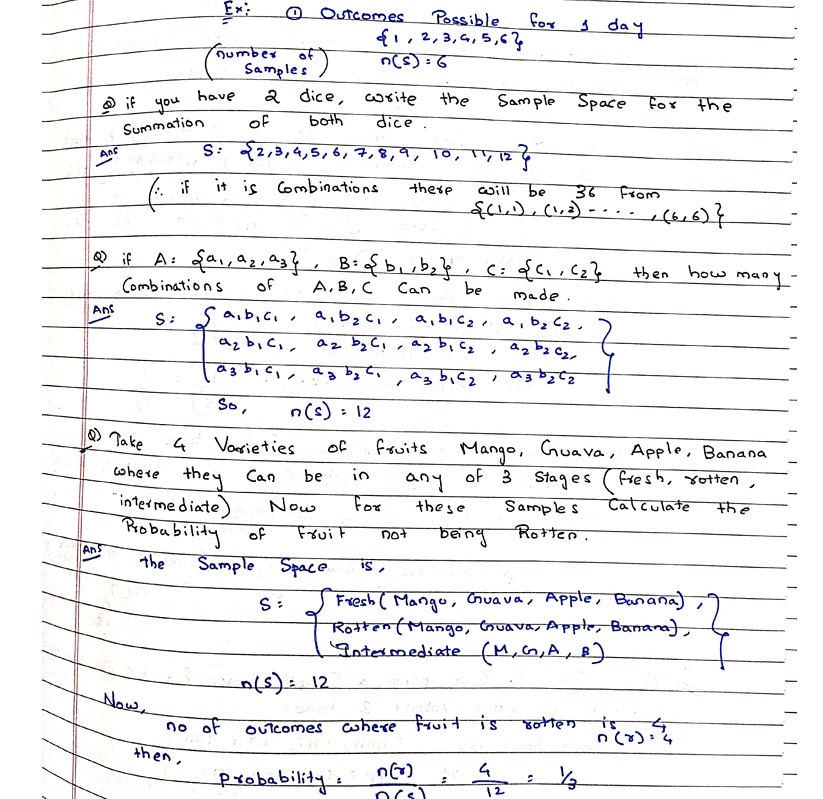 Ex: ① Outcomes Possible for 1 day
{1, 2, 3, 4, 5, 6}
(number of Samples) n(S) = 6
Q if you have 2 dice, write the Sample Space for the
Summation of both dice.
Ans S: {2,3,4,5,6, 7,8,9, 10, 11, 12}
(∴ if it is Combinations there will be 36 from
{(1,1), (1,2) - - - - , (6,6)}
Q if A = {a₁, a₂, a₃}, B = {b₁, b₂}, C = {C₁, C₂} then how many
Combinations of A, B, C Can be made.
Ans S: { a₁b₁c₁, a₁b₂c₁, a₁b₁c₂, a₁b₂c₂,
a₂b₁c₁, a₂b₂c₁, a₂b₁c₂, a₂b₂c₂,
a₃b₁c₁, a₃b₂c₁, a₃b₁c₂, a₃b₂c₂ }
So, n(S) = 12
Q) Take 4 Varieties of fruits Mango, Guava, Apple, Banana
where they Can be in any of 3 Stages (fresh, rotten,
intermediate) Now for these Samples Calculate the
Probability of fruit not being Rotten.
Ans the Sample Space is,
S: { Fresh (Mango, Guava, Apple, Banana),
Rotten (Mango, Guava, Apple, Banana),
Intermediate (M, G, A, B) }
n(S) = 12
Now,
no of outcomes where fruit is rotten is 4
n(r) = 4
then,
Probability = n(r)/n(S) = 4/12 = 1/3